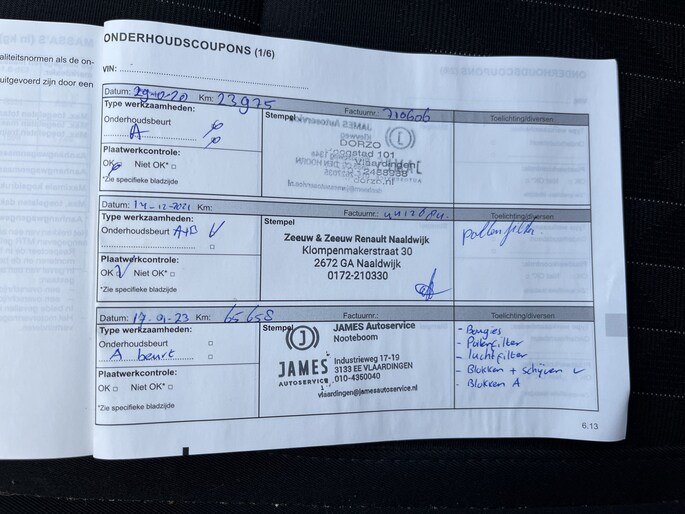 aliteitsnormen als de on-
uitgevoerd zijn door een
ONDERHOUDSCOUPONS (1/6)
VIN:
Datum: 29-12-20 Km: 23975 Factuurnr.: 210606
Type werkzaamheden:
Onderhoudsbeurt
A
Plaatwerkcontrole:
OK Niet OK*
*Zie specifieke bladzijde
Stempel
DORZO
101
Vlaardingen
dorzo.nl
Toelichting/diversen
Datum: 14-12-2021 Km: Factuurnr.:
Type werkzaamheden:
Onderhoudsbeurt A+B V
Plaatwerkcontrole:
OK V Niet OK*
*Zie specifieke bladzijde
Stempel
Zeeuw & Zeeuw Renault Naaldwijk
Klompenmakerstraat 30
2672 GA Naaldwijk
0172-210330
Toelichting/diversen
pollenfilter.
Datum: 17-01-23 Km: 65658 Factuurnr.:
Type werkzaamheden:
Onderhoudsbeurt
A beurt
Plaatwerkcontrole:
OK Niet OK*
*Zie specifieke bladzijde
Stempel
JAMES
AUTOSERVICE
JAMES Autoservice
Nooteboom
Industrieweg 17-19
3133 EE VLAARDINGEN
010-4350040
vlaardingen@jamesautoservice.nl
Toelichting/diversen
- Bougies
- Polenfilter
- luchtfilter
- Blokken + schijven V
- Blokken A
6.13